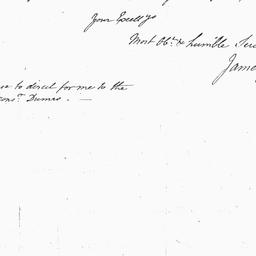 Your Excellys
Most Obt. & humble Ser
Jame
se to direct for me to the
Dumas. —